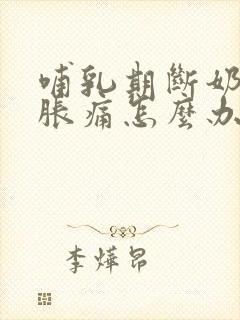 哺乳期斷奶
脹痛怎麼办
李燁昂